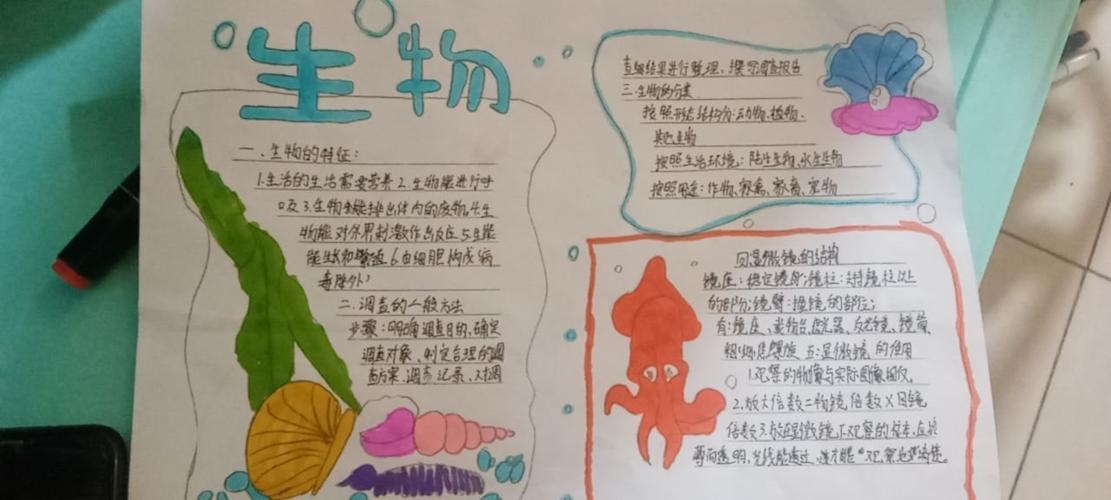 生物
一、生物的特征:
1.生活的生活需要营养2.生物能进行呼
吸3.生物能排出体内的废物.4.生
物能对外界刺激作出反应5.生能
能生长和繁殖6.由细胞构成(病
毒除外)
二、调查的一般方法
步骤:明确调查目的、确定
调查对象、制定合理的调
查方案、调查记录、对调
查的结果进行整理、撰写调查报告
三.生物的分类
按照形态结构分:动物、植物、
其他生物
按照生活环境:陆生生物、水生生物
按照用途:作物、家禽、家畜、宠物
四.显微镜的结构
镜座:稳定镜身;镜柱:支持镜柱以上
的部分;镜臂:握镜的部位;
有:镜座、载物台、遮光器、反光镜、镜筒、
粗细焦螺旋 五:显微镜的使用
1.观察的物像与实际图像相反。
2.放大倍数=物镜倍数×目镜
倍数3.放在显微镜下观察的标本,应该
薄而透明,光线能通过,